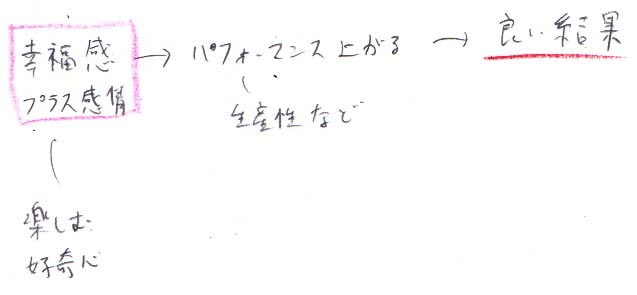 幸福感 → パフォーマンス上がる → 良い結果
プラス感情
生産性など
楽しむ
好奇心